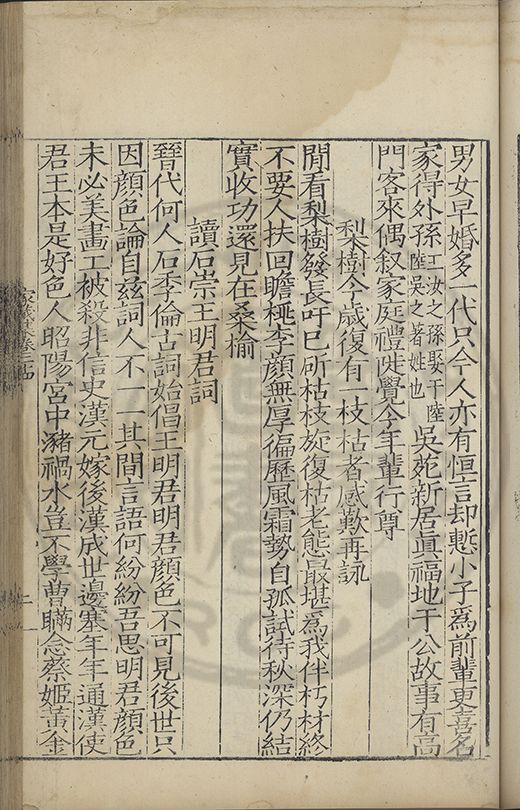 男女早婚多一代只今人亦有恒言却慙小子爲前輩更喜名
家得外孫工汝之孫娶干陸陸吳之著姓也吳苑新居眞福地干公故事有高
門客來偶叙家庭禮陡覺今年輩行尊
梨樹今歳復有一枝枯者感歎再詠
閒看梨樹發長吁巳斫枯枝旋復枯老態最堪爲我伴朽材終
不要人扶回瞻桃李顔無厚徧歷風霜勢自孤試待秋深仍結
實收功還見在桑榆
讀石崇王明君詞
晉代何人石季倫古詞始倡王明君明君顔色不可見後世只
因顔色論自兹詞人不一一其間言語何紛紛吾思明君顔色
未必美畫工被殺非信史漢元嫁後漢成世邉塞年年通漢使
君王本是好色人昭陽宮中瀦禍水豈不學曹瞞念蔡姬黃金